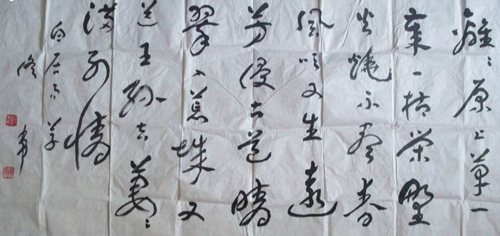 離〻原上草一
歲一枯榮野
火燒不盡春
風吹又生遠
芳侵古道晴
翠接荒城又
送王孫去萋〻
滿別情
白居易草
書